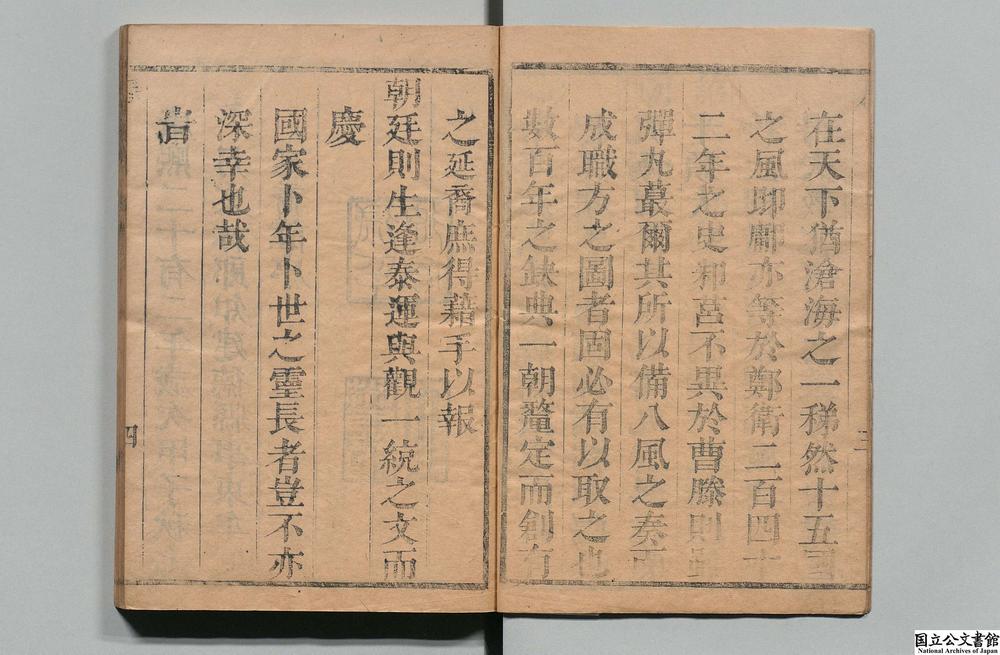 在天下猶滄海之一稊然十五國
之風邶鄘亦等於鄭衛二百四十
二年之史邾莒不異於曹滕則雖
彈丸蕞爾其所以備八風之奏而
成職方之圖者固必有以取之也
數百年之缺典一朝釐定而創有
三
之延裔庶得藉手以報
朝廷則生逢泰運與觀一統之文而
慶
國家卜年卜世之靈長者豈不亦
深幸也哉
旹
四
国立公文書館
National Archives of Japan